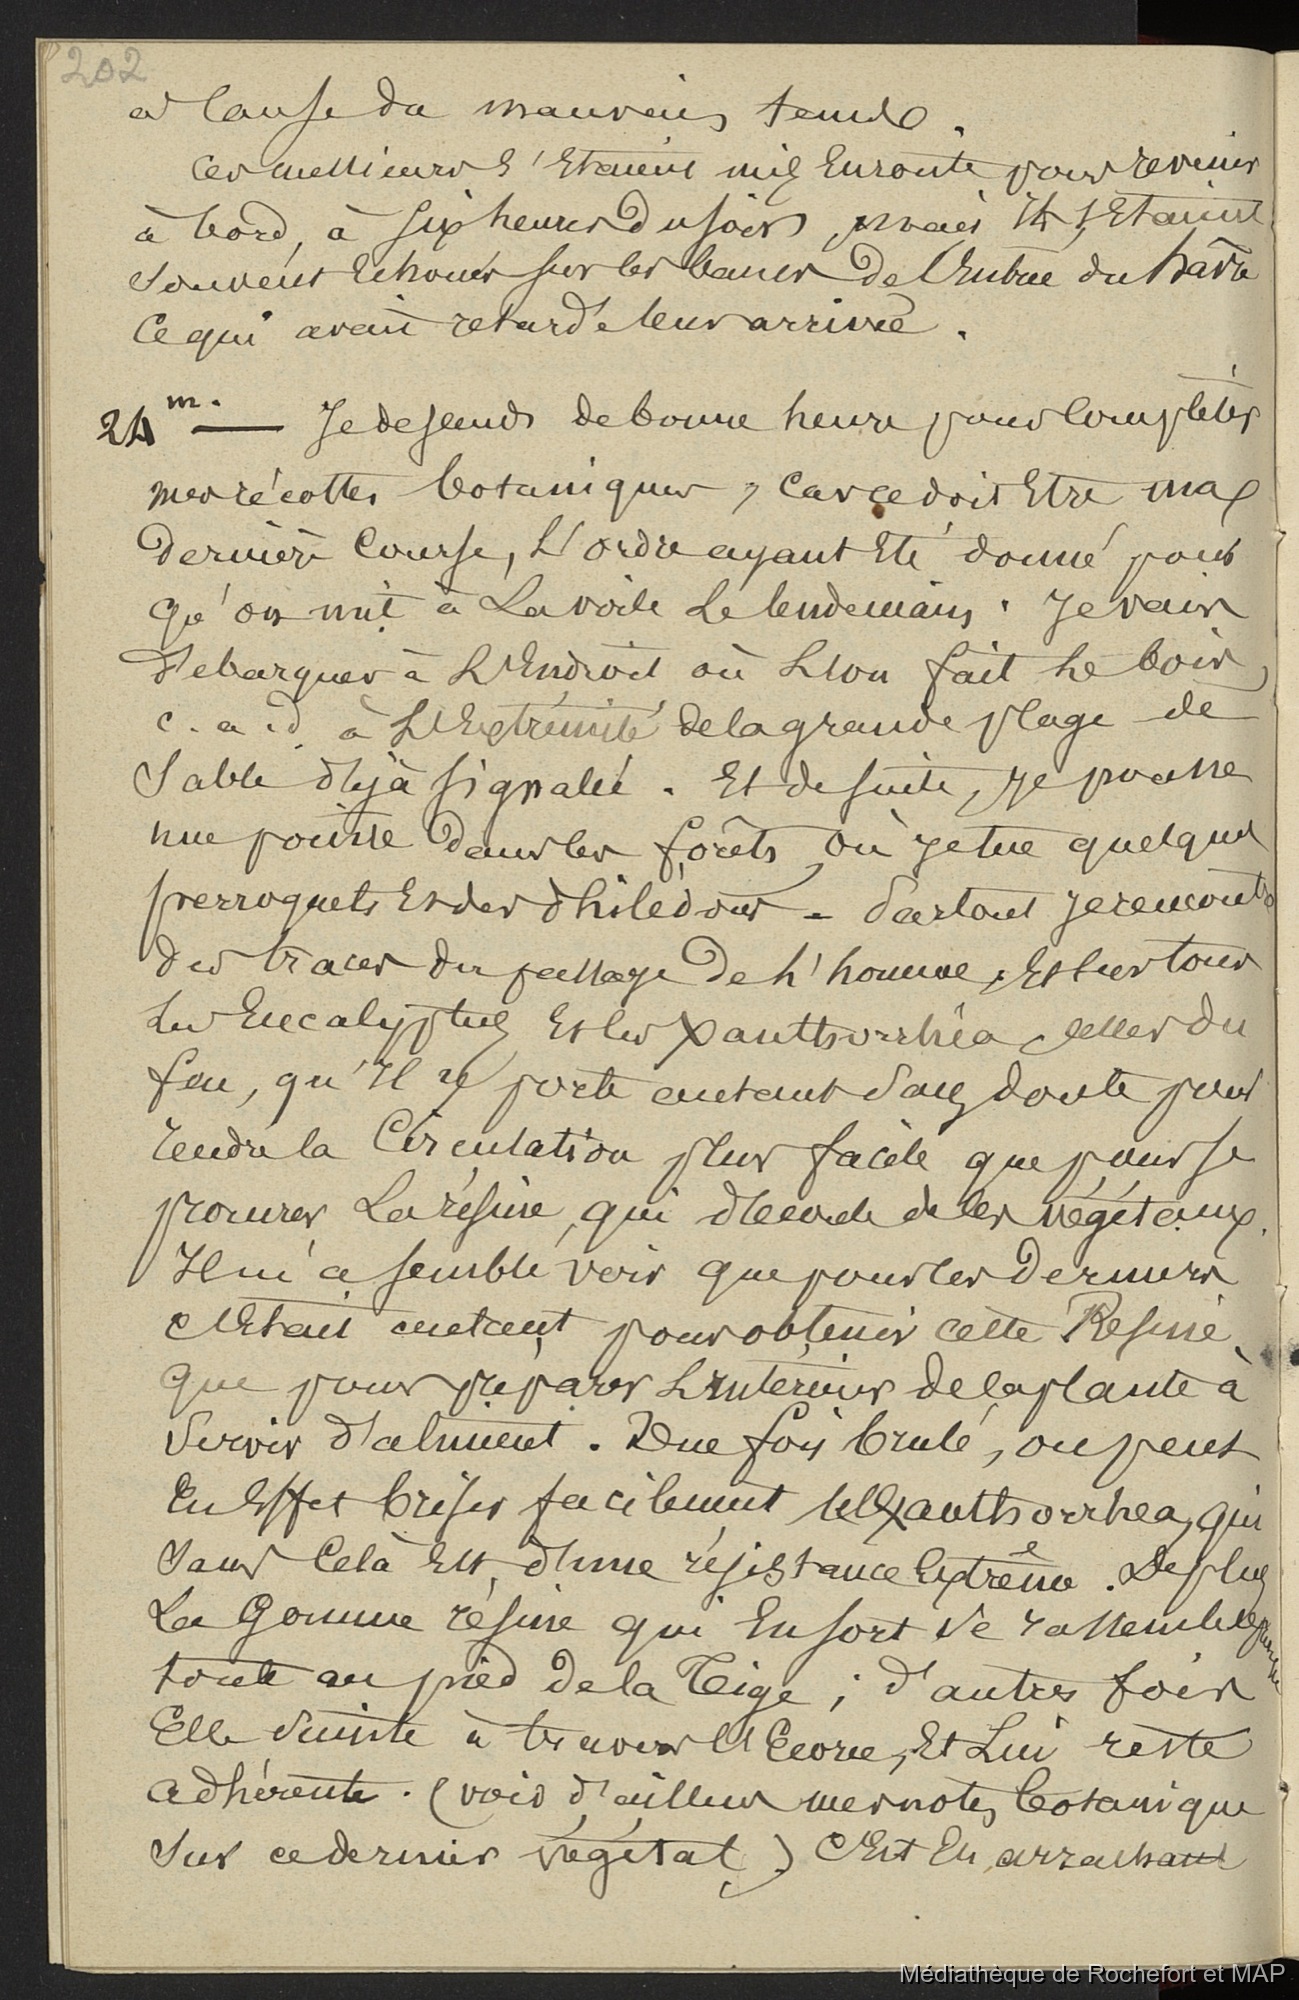 202
a cause du mauvais temps.
Ces messieurs s'etaient mis en route pour revenir
à bord, à six heures du soir, mais ils s'etaient
souvent echoués sur les bancs de l'entrée du hâvre
ce qui avait retardé leur arrivée.
24 m. — Je descends de bonne heure pour completer
mes récoltes botaniques, car ce doit etre ma
dernière course, L'ordre ayant été donné pour
qu'on mit à La voile Le lendemain. Je vais
debarquer à L'Endroit où L'on fait Le bois,
c. a. d. à L'Extrémité de la grande plage de
sable déjà signalée. Et de suite, je pousse
une pointe dans les forêts, où je tue quelques
perroquets et des Philédons. Partout je rencontre
des traces du passage de L'homme, Et surtout
les Eucalyptus et les Xanthorrhéa celles du
feu, qu'Il y porte autant sans doute pour
rendre la Circulation plus facile que pour se
procurer La résine, qui découle de ces végétaux.
Il m'a semblé voir que pour les derniers
c'Etait autant pour obtenir cette Résine
que pour préparer L'intérieur de la plante à
servir d'aliment. Une fois brulé, on peut
En Effet briser facilement le Xanthorrhea, qui
sans Celà Est d'une résistance Extrême. De plus
La Gomme résine qui En sort se rassemble presque
toute au pied de la Tige; d'autres fois
Elle suinte à travers L'Ecorce, Et Lui reste
adhérente. (voir d'ailleurs mes notes botanique
sur ce dernier végétal.) C'Est En arrachant
Médiathèque de Rochefort et MAP